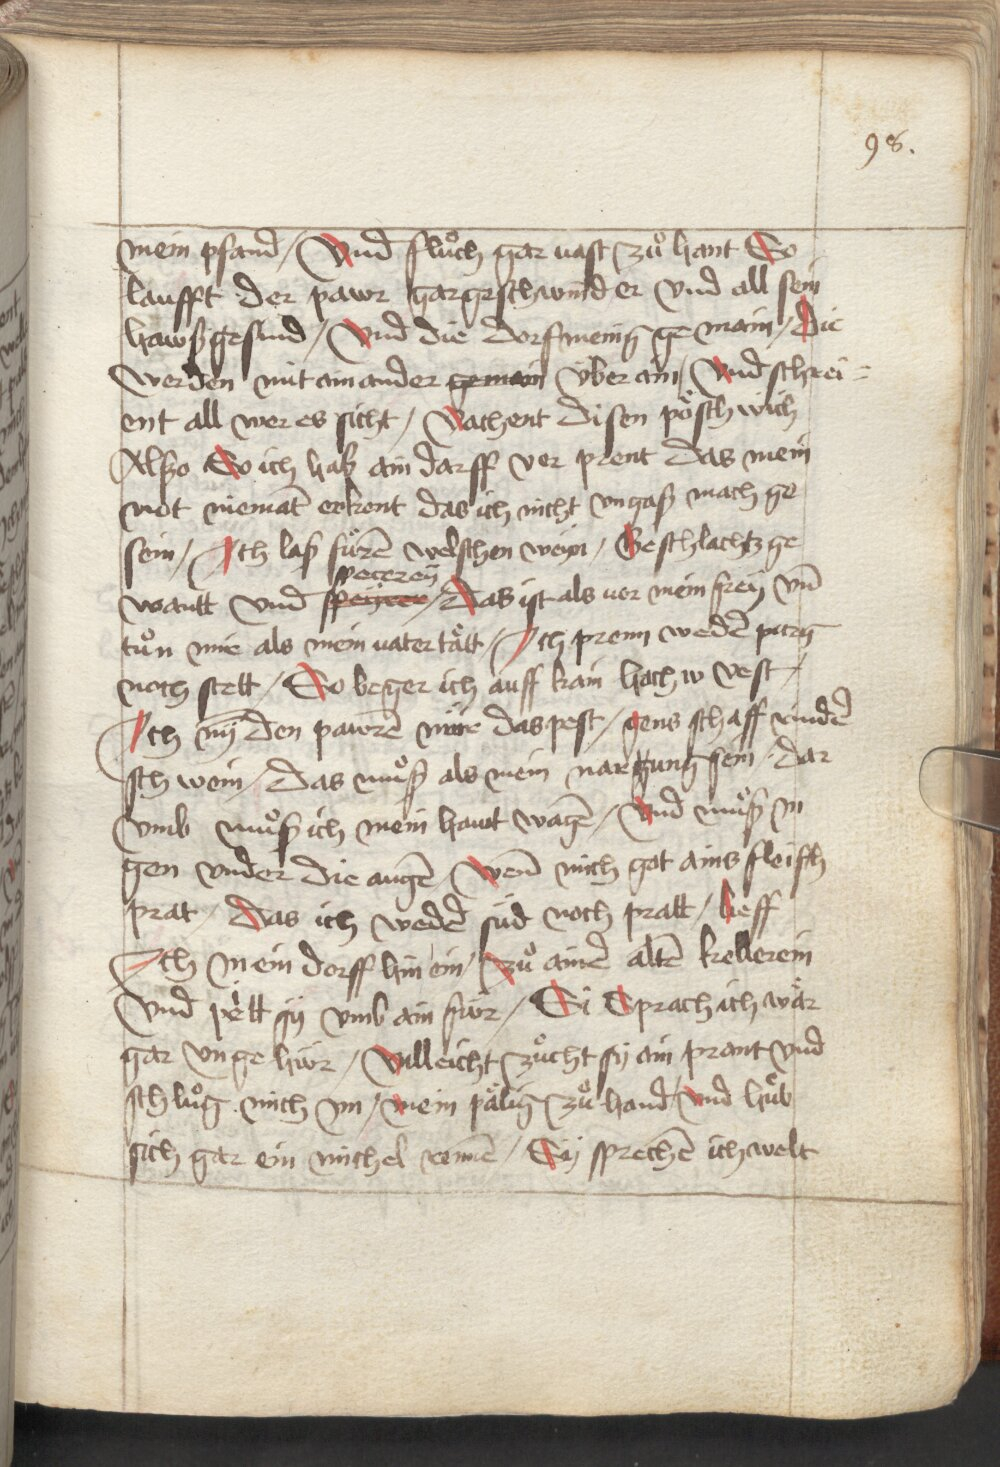 98.
mein pfand / Vnd fluͦch gar vast zuͦ hant So
laufft der pawr gar geschwind er vnd all sein
hawßgesind / Vnd die dorfmenig gemain / Die
werden mit ain ander gemain v̈ber ain / Vnd schrei=
ent all wer es sicht / Vachent disen poͤschwich
Alßo So ich haß ain darff ver prent das mein
not niemāt erkent das ich nicht vngaß mach ge
sein / Ich laß fuͤrē welschen wein / Geschlachtz ge
wantt vnd speijrer specereÿ / Das ist als vor mein freÿ vn̄
tuͦn mir als mein vater taͤtt / Ich prenn wedē purg
noch stett / So beger ich auff kain hoch w vest /
Ich nÿ den pawrē nur das pest / gens schaff rindē
schwein / Das muͦß als mein narung sein / dar
vmb muͦß ich mein hawt wagē / Vnd muͦß in
gen vnder die augē / Wen̄ mich got ains fleisch
prat / Das ich wedē sud noch pratt / lieff
Ich in ein dorff hin ein / zuͦ ainē altē kellerein
Vnd pètt sÿ vmb ain fwr / Si Sprach ich wär
gar vnge hwr / Villeicht zuͦcht sÿ ain prant vnd
schluͦg mich in / mein paͤlig zuͦ hand / vnd huͤb
sich gar ein michel rennē / Sÿ sprechē ich welt